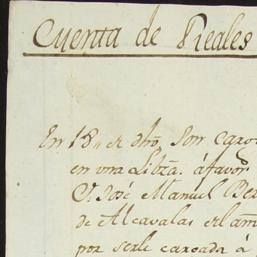 Cuenta de Reales
En 18 de dho, son cargo
en una Libza. á favor
D. José Manuel Be
de Alcavalas el am
por serle cargada á